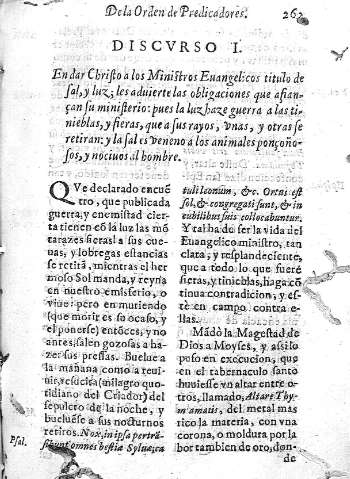 De la Orden de Predicadores.
262
DISCVRSO I.
En dar Christo a los Ministros Euangelicos titulo de
sal, y luz; les aduierte las obligaciones que afian-
çan su ministerio: pues la luz haze guerra a las ti-
nieblas, y fieras, que a sus rayos, vnas, y otras se
retiran: y la sal es veneno a los animales ponçoño-
sos, y nociuos al hombre.
QVe declarado encuẽ
tro, que publicada
guerra, y enemistad cier-
ta tienen cõ la luz las mõ
tarazes fieras! a sus cue-
uas, y lobregas estancias
se retirã, mientras el her
moso Sol manda, y reyna
en nuestro emisferio, o
viue: pero en muriendo
(que morir es su ocaso, y
el ponerse) entõces, y no
antes, salen gozosas a ha-
zer sus presas. Buelue a
la mañana como a reui-
uir, resucita (milagro quo-
tidiano del Criador) del
sepulcro de la noche, y
bueluese a sus nocturnos
retiros. Nox, in ipsa pertrã-
sibunt omnes bestiæ Sylua, ca
Psal.
tuli leonum, &c. Ortus est
sol, & congregati sunt, & in
cubilibus suis collocabuntur.
Y tal ha de ser la vida del
Euangelico ministro, tan
clara, y resplandeciente,
que a todo lo que fuere
fieras, y tinieblas, haga cõ
tinua contradicion, y es-
tè en campo contra e-
llas.
Mãdò la Magestad de
Dios a Moyses, y assi lo
puso en execucion, que
en el tabernaculo santo
huuiesse vn altar entre o-
tros, llamado, Altare Thy-
miamatis, del metal mas
rico la materia, con vna
corona, o moldura por la
bor tambien de oro, don-
de